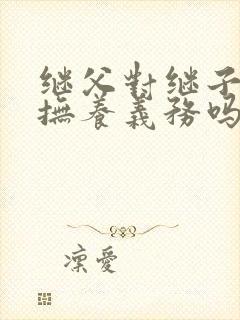 继父對继子
撫養義務吗
凛愛